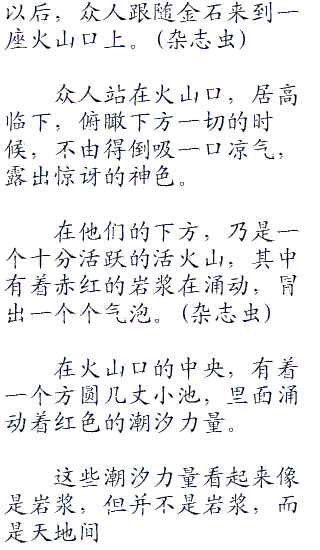 以后，众人跟随金石来到一
座火山口上。(杂志虫)
众人站在火山口，居高
临下，俯瞰下方一切的时
候，不由得倒吸一口凉气，
露出惊讶的神色。
在他们的下方，乃是一
个十分活跃的活火山，其中
有着赤红的岩浆在涌动，冒
出一个个气泡。(杂志虫)
在火山口的中央，有着
一个方圆几丈小池，里面涌
动着红色的潮汐力量。
这些潮汐力量看起来像
是岩浆，但并不是岩浆，而
是天地间